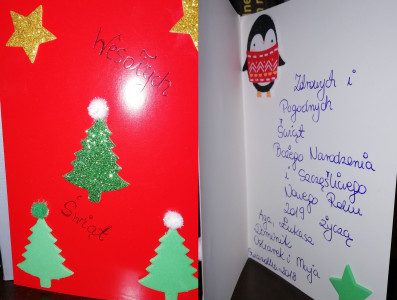 Wesołych
Świąt
Zdrowych i
Pogodnych
Świąt
Bożego Narodzenia
i Szczęśliwego
Nowego Roku
2019 życzą
Aga, Łukasz
Dominik
i Maja
2018